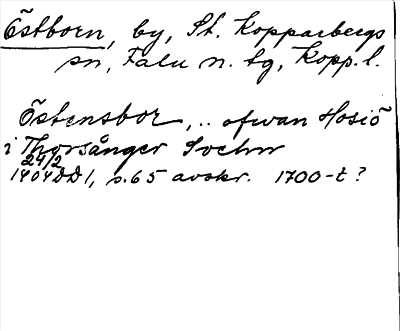 Östborn, by, St. Kopparbergs
sn, Falu n. tg, Kopp. l.
Östensbor, .. ofwan Hosiö
i Thorsånger Sochn
24/2
1404 DD1, s. 65 avskr. 1700-t?